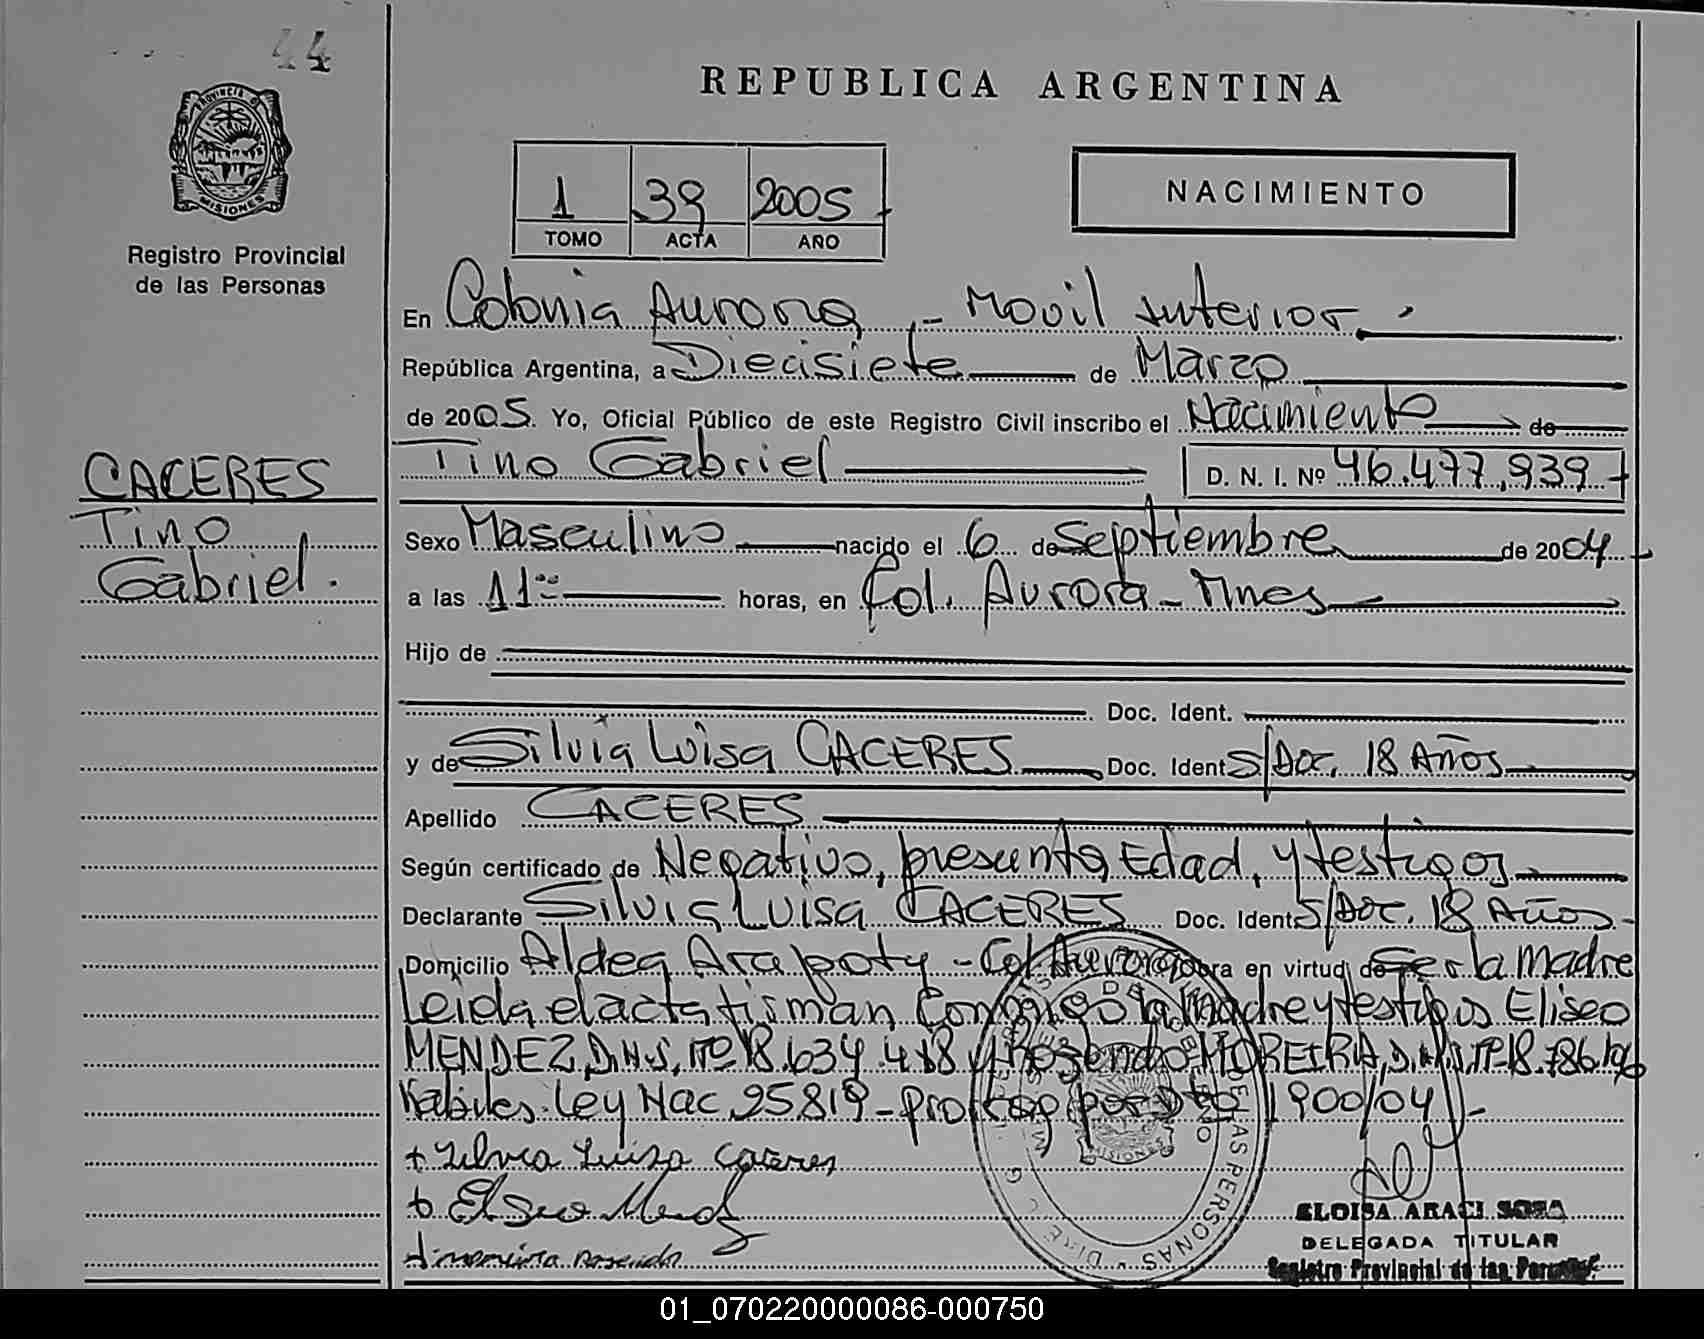 44
REPUBLICA ARGENTINA
PROVINCIA DE
MISIONES
Registro Provincial
de las Personas
1 39 2005
TOMO ACTA AÑO
NACIMIENTO
En Colonia Aurora, - Movil Interior.
República Argentina, a Diecisiete de Marzo
de 2005. Yo, Oficial Público de este Registro Civil inscribo el Nacimiento de
Tino Gabriel D. N. I. Nº 46.477.939
CACERES
Tino
Gabriel.
Sexo Masculino nacido el 6 de Septiembre de 2004
a las 11 horas, en Col. Aurora - Mnes
Hijo de
Doc. Ident.
y de Silvia Luisa CACERES Doc. Ident S/Doc. 18 Años
Apellido CACERES
Según certificado de Negativo, presunta Edad, y testigos
Declarante Silvia Luisa CACERES Doc. Ident S/Doc. 18 Años-
Domicilio Aldea Arapoty - Col. Aurora obra en virtud de Ser la madre
Leida el acta firman Conmigo la Madre y testigos Eliseo
MENDEZ, D.N.I. Nº 18.634.418 y Rosendo MOREIRA, D.N.I. Nº 18.786.196
Habiles. Ley Nac 25819 - por Dto 1900/04 -
+ Silvia Luisa Caceres
Eliseo Mendez
moreira Rosendo
ELOISA ARACI SOSA
DELEGADA TITULAR
Registro Provincial de las Personas
01_070220000086-000750